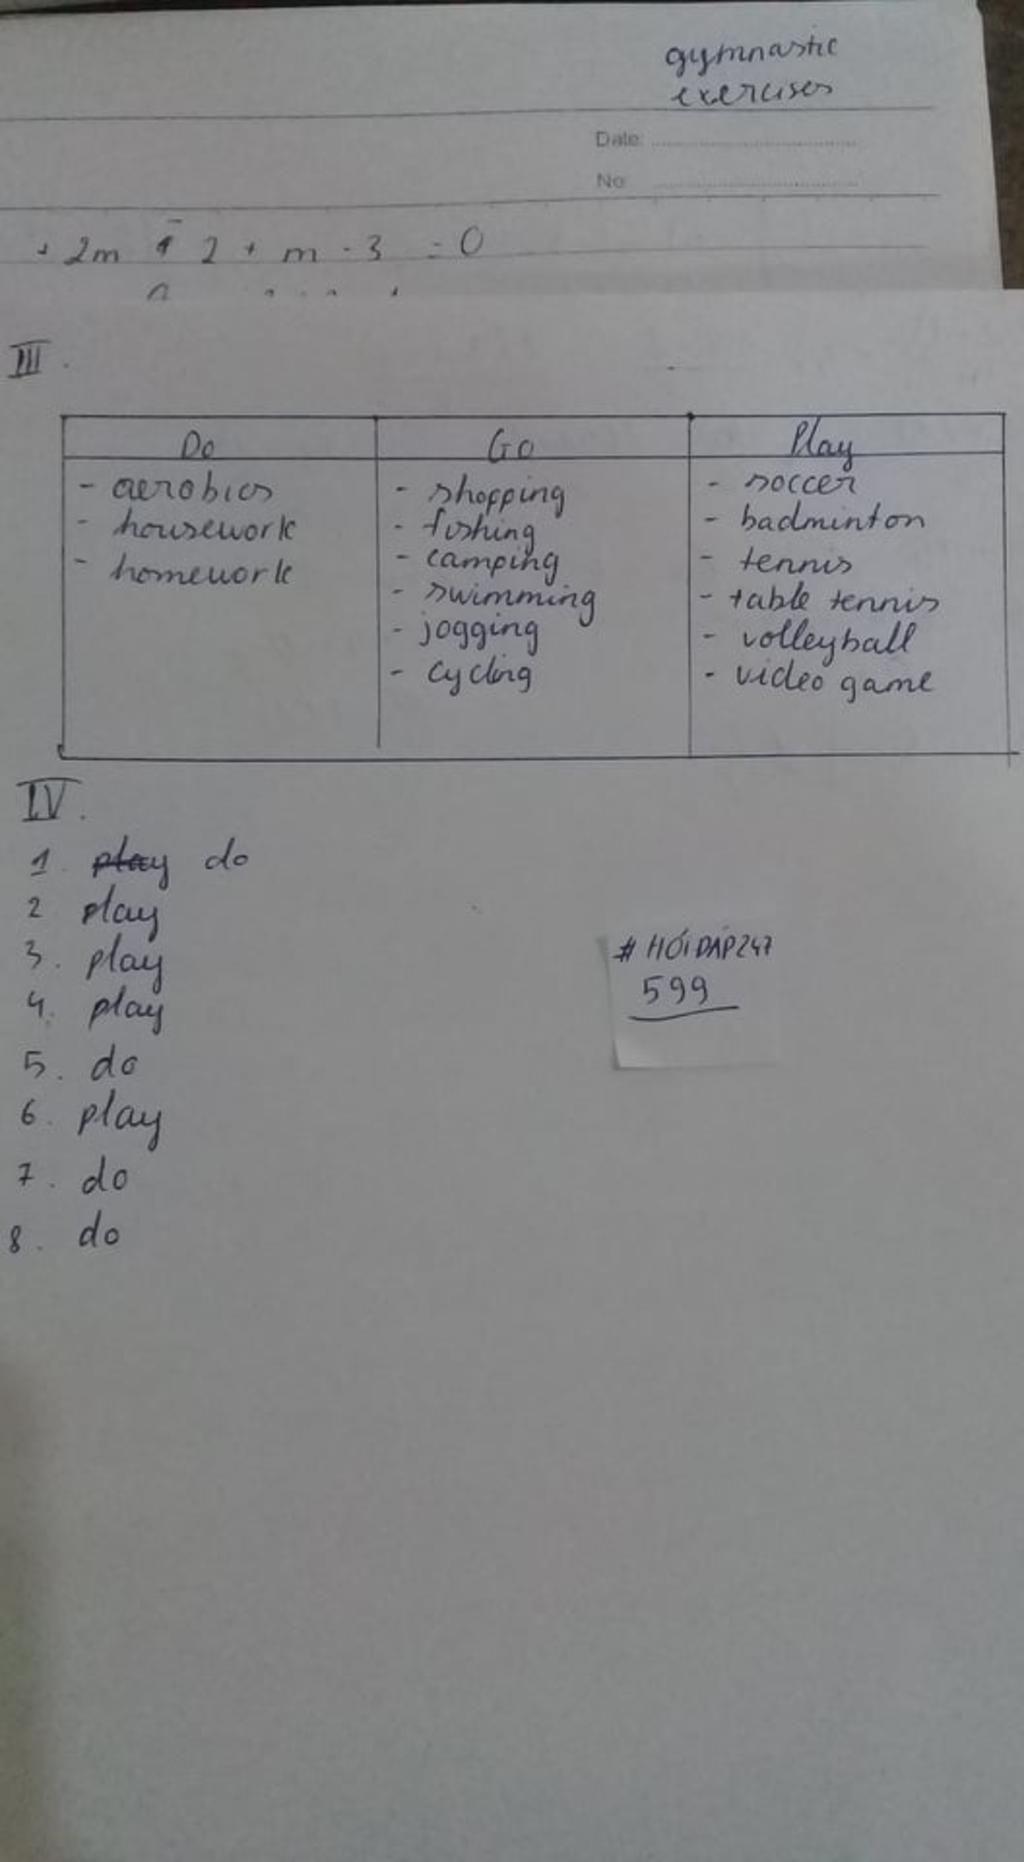 gymnastic
exercises
Date:
No
+ 2m + 2 + m - 3 = 0
III.
Do Go Play
- aerobics
- housework
- homework
- shopping
- fishing
- camping
- swimming
- jogging
- cycling
- soccer
- badminton
- tennis
- table tennis
- volleyball
- video game
IV.
1. play do
2 play
3. play
4. play
5. do
6. play
7. do
8. do
# HỎIĐÁP247
599